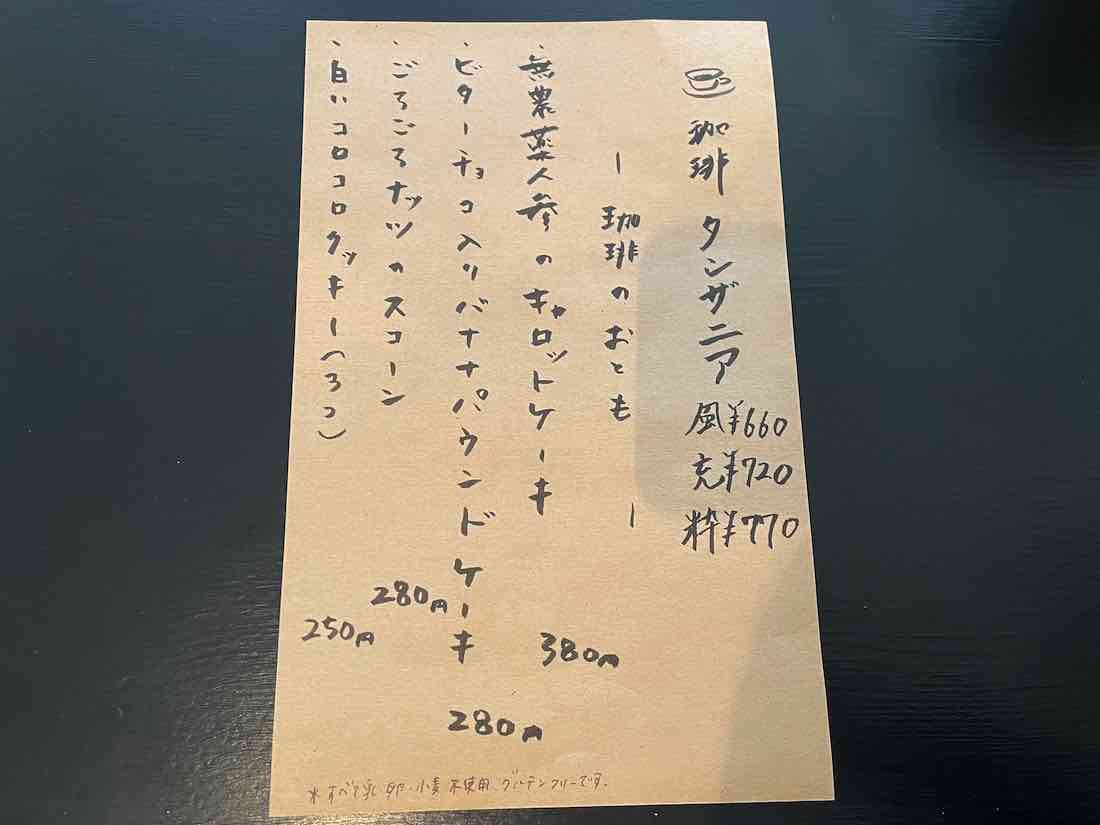 珈琲 タンザニア
風¥660
充¥720
粋¥770
ー 珈琲のおとも ー
・無農薬人参のキャロットケーキ
380円
・ビターチョコ入りバナナパウンドケーキ
280円
・ごろごろナッツのスコーン
280円
・白いコロコロクッキー(3コ)
250円
※すべて乳・卵・小麦不使用、グルテンフリーです。